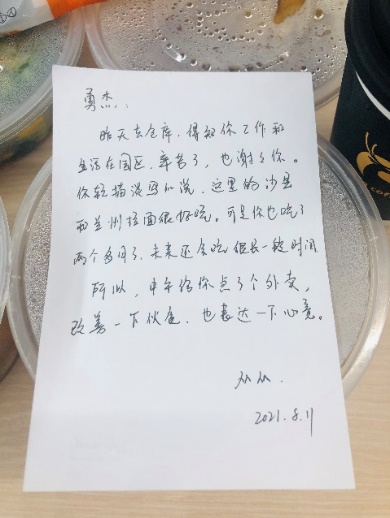 勇杰、
昨天去仓库，得知你工作和
生活在园区，辛苦了，也谢谢你。
你轻描淡写和说，这里的沙县
和兰州拉面很好吃。可是你也吃了
两个多月了，未来还会吃很长一段时间
所以，中午给你点了个外卖，
改善一下伙食，也表达一下心意。
从从.
2021.8.11